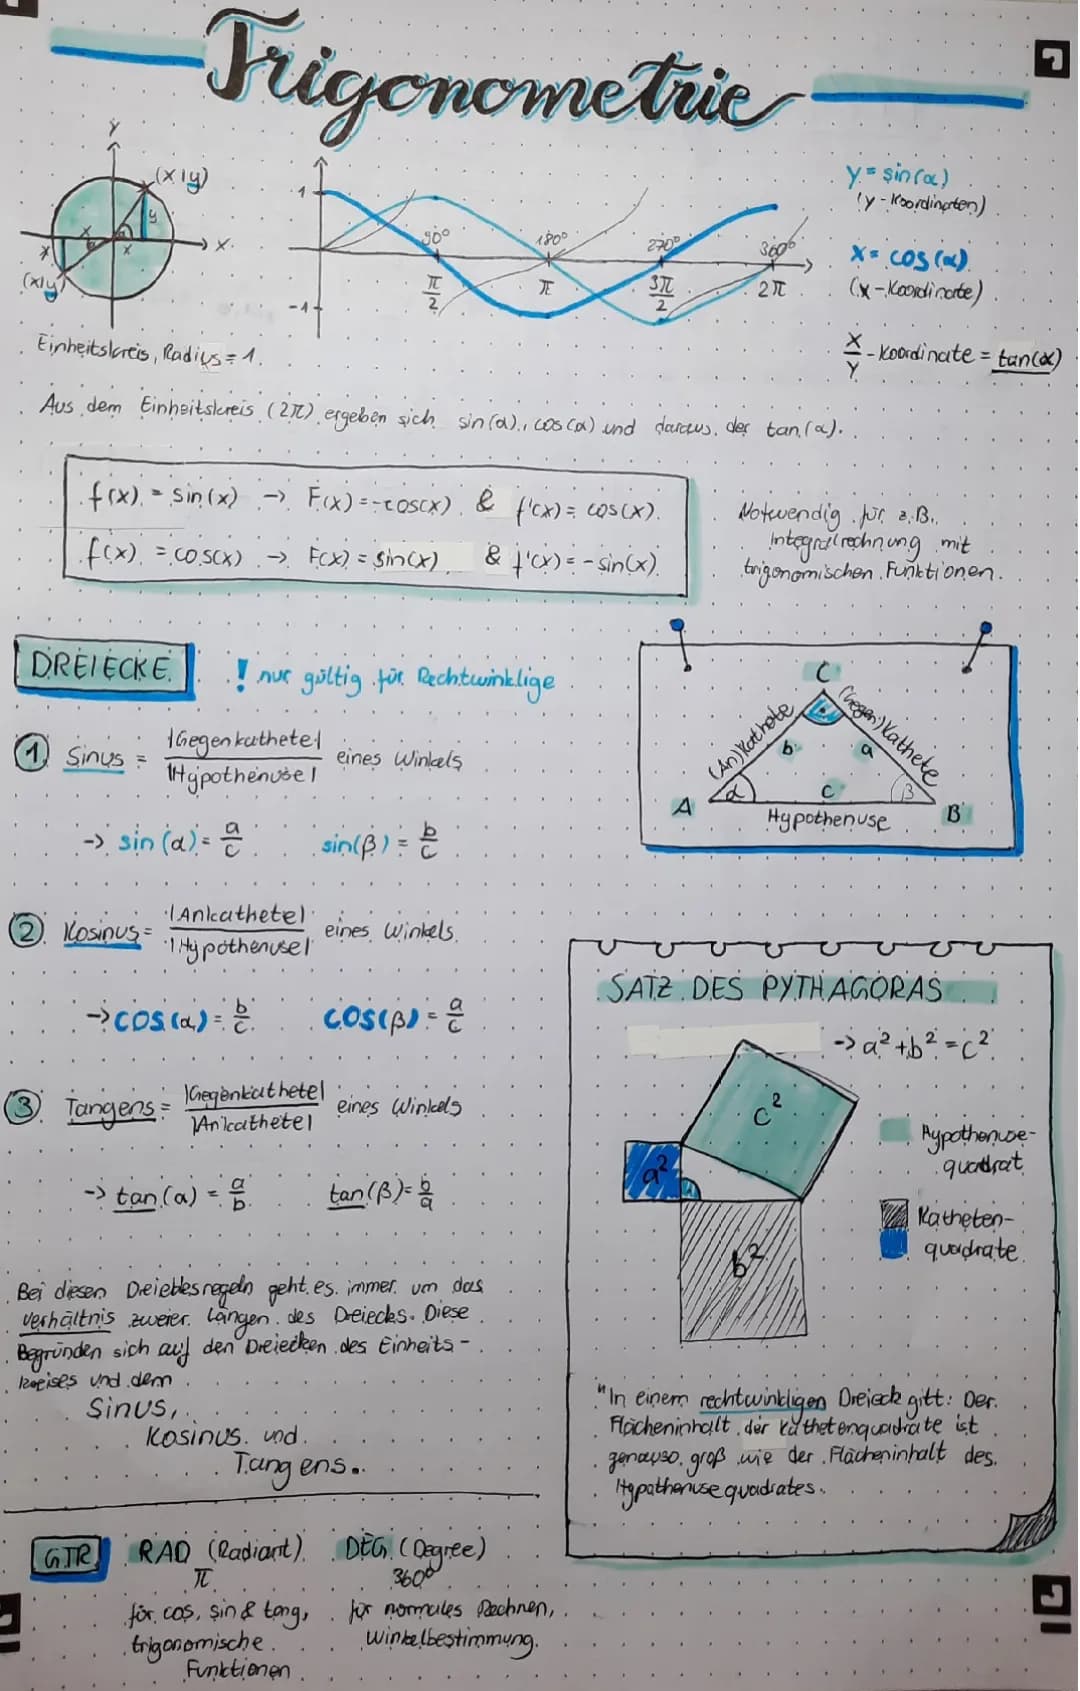 Trigonometrie
y
(x|y)
y
x
x
α
x
(x|y)
Einheitskreis, Radius = 1.
1
-1
90°
180°
270°
360°
π/2
π
3π/2
2π
y = sin(α)
(y-Koordinaten)
x = cos(α)
(x-Koordinate)
x/y -Koordinate = tan(α)
Aus dem Einheitskreis (2π) ergeben sich sin(α), cos(α) und daraus der tan(α).
f(x) = sin(x) -> F(x) = -cos(x) & f'(x) = cos(x).
f(x) = cos(x) -> F(x) = sin(x) & f'(x) = -sin(x)
Notwendig für z.B.
Integralrechnung mit
trigonomischen Funktionen.
DREIECKE
! nur gültig für Rechtwinklige
① Sinus = |Gegenkathete| / |Hypothenuse| eines Winkels
-> sin(α) = a/c sin(β) = b/c
C
(An)Kathete
(Gegen)Kathete
b
a
α
c
β
A
B
Hypothenuse
② Kosinus = |Ankathete| / |Hypothenuse| eines Winkels
-> cos(α) = b/c cos(β) = a/c
③ Tangens = |Gegenkathete| / |Ankathete| eines Winkels
-> tan(α) = a/b tan(β) = b/a
Bei diesen Dreiecksregeln geht es immer um das
Verhältnis zweier Längen des Dreiecks. Diese
Begründen sich auf den Dreiecken des Einheits-
kreises und dem
Sinus,
Kosinus und
Tangens.
SATZ DES PYTHAGORAS
-> a² + b² = c²
c²
a²
b²
Hypothenuse-
quadrat
Katheten-
quadrate
"In einem rechtwinkligen Dreieck gitt: Der
Flächeninhalt der Kathetenquadrate ist
genauso groß wie der Flächeninhalt des
Hypothenusequadrates.
GTR
RAD (Radiant)
π
für cos, sin & tang,
trigonomische
Funktionen
DEG (Degree)
360°
für normales Rechnen,
Winkelbestimmung.